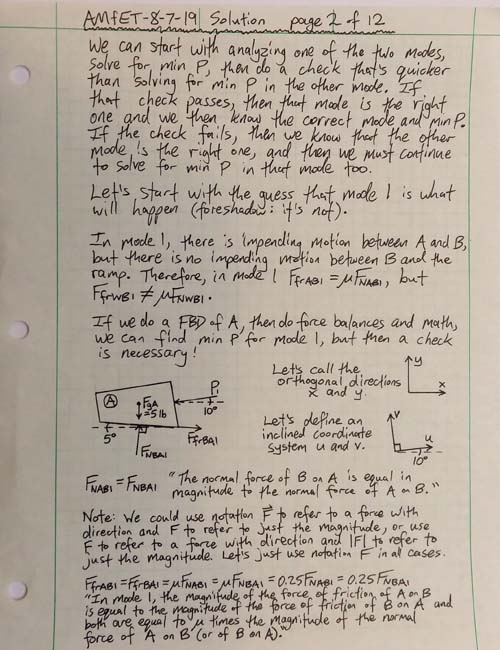 AMfET-8-7-19 Solution page 2 of 12
We can start with analyzing one of the two modes,
solve for min P, then do a check that's quicker
than solving for min P in the other mode. If
that check passes, then that mode is the right
one and we then know the correct mode and min P.
If the check fails, then we know that the other
mode is the right one, and then we must continue
to solve for min P in that mode too.
Let's start with the guess that mode 1 is what
will happen (foreshadow: it's not).
In mode 1, there is impending motion between A and B,
but there is no impending motion between B and the
ramp. Therefore, in mode 1 FfrAB1 = μFNAB1, but
FfrWB1 ≠ μFNWB1.
If we do a FBD of A, then do force balances and math,
we can find min P for mode 1, but then a check
is necessary!
Let's call the
orthogonal directions
x and y.
y
x
A
FgA
=5 lb
P1
10°
5°
FfrBA1
FNBA1
Let's define an
inclined coordinate
system u and v.
v
u
10°
FNAB1 = FNBA1 "The normal force of B on A is equal in
magnitude to the normal force of A on B."
Note: We could use notation F⃗ to refer to a force with
direction and F to refer to just the magnitude, or use
F to refer to a force with direction and |F| to refer to
just the magnitude. Let's just use notation F in all cases.
FfrAB1 = FfrBA1 = μFNAB1 = μFNBA1 = 0.25FNAB1 = 0.25FNBA1
"In mode 1, the magnitude of the force of friction of A on B
is equal to the magnitude of the force of friction of B on A and
both are equal to μ times the magnitude of the normal
force of A on B (or of B on A).